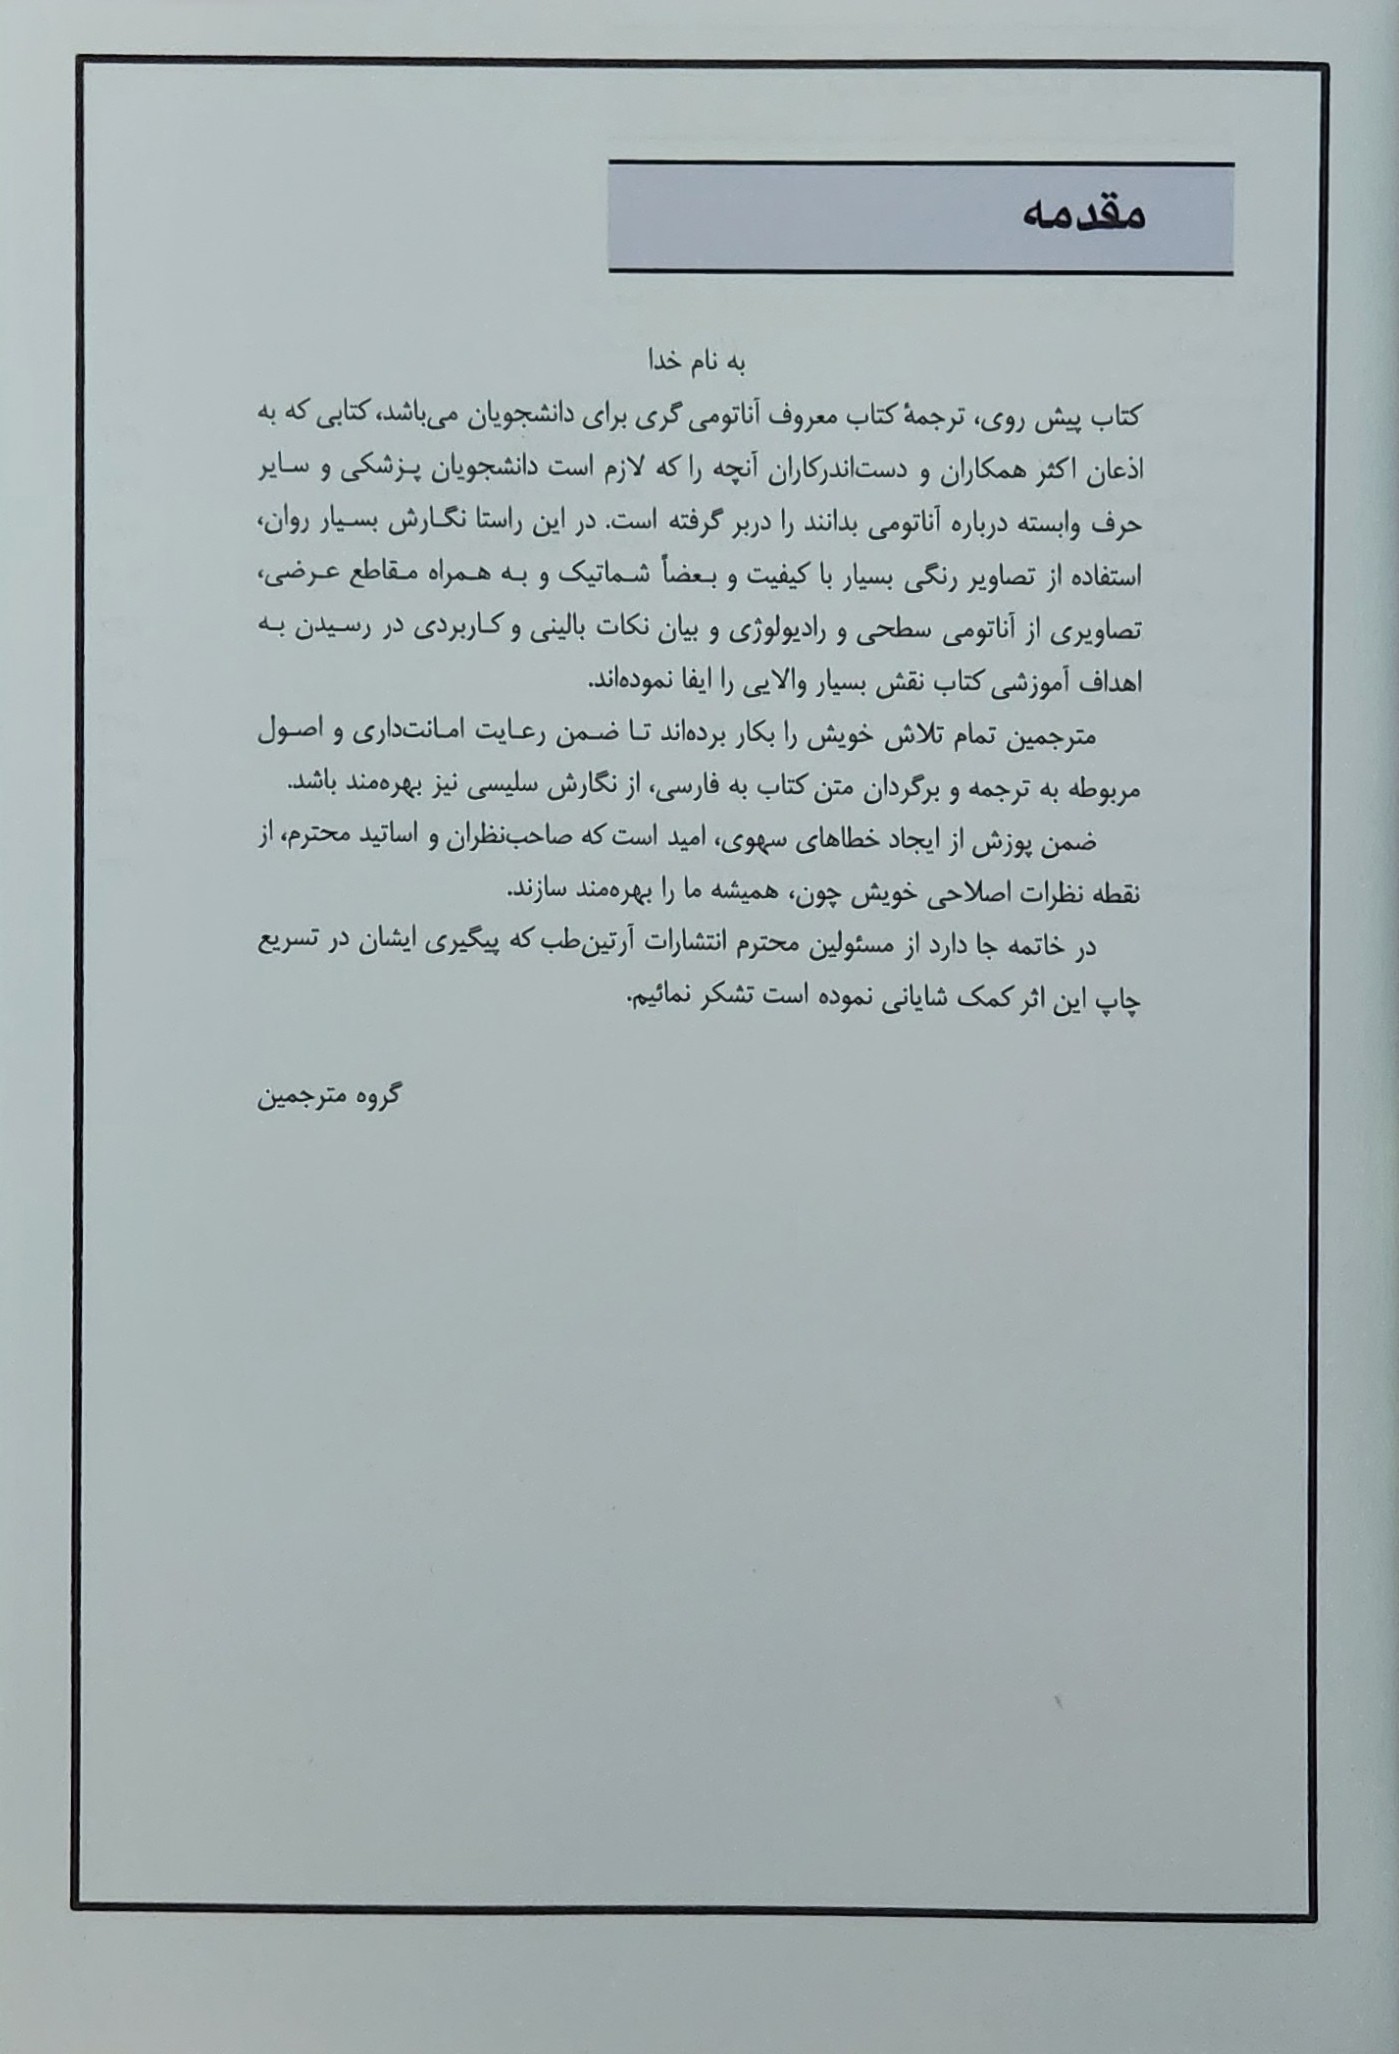 مقدمه
به نام خدا
کتاب پیش روی، ترجمهٔ کتاب معروف آناتومی گری برای دانشجویان می‌باشد، کتابی که به
اذعان اکثر همکاران و دست‌اندرکاران آنچه را که لازم است دانشجویان پزشکی و سایر
حرف وابسته درباره آناتومی بدانند را دربر گرفته است. در این راستا نگارش بسیار روان،
استفاده از تصاویر رنگی بسیار با کیفیت و بعضاً شماتیک و به همراه مقاطع عرضی،
تصاویری از آناتومی سطحی و رادیولوژی و بیان نکات بالینی و کاربردی در رسیدن به
اهداف آموزشی کتاب نقش بسیار والایی را ایفا نموده‌اند.
مترجمین تمام تلاش خویش را بکار برده‌اند تا ضمن رعایت امانت‌داری و اصول
مربوطه به ترجمه و برگردان متن کتاب به فارسی، از نگارش سلیسی نیز بهره‌مند باشد.
ضمن پوزش از ایجاد خطاهای سهوی، امید است که صاحب‌نظران و اساتید محترم، از
نقطه نظرات اصلاحی خویش چون، همیشه ما را بهره‌مند سازند.
در خاتمه جا دارد از مسئولین محترم انتشارات آرتین‌طب که پیگیری ایشان در تسریع
چاپ این اثر کمک شایانی نموده است تشکر نمائیم.
گروه مترجمین